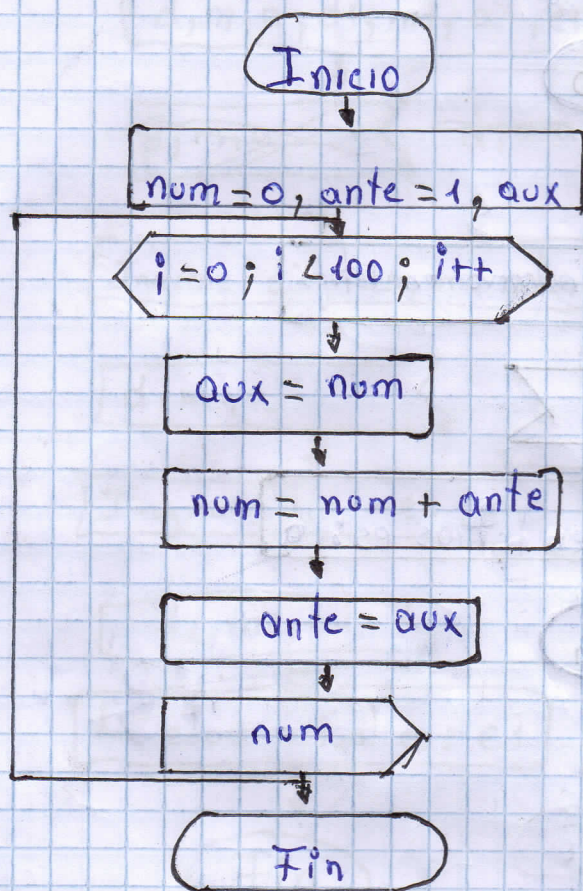 Inicio
num = 0, ante = 1, aux
i = 0 ; i < 100 ; i++
aux = num
num = num + ante
ante = aux
num
Fin